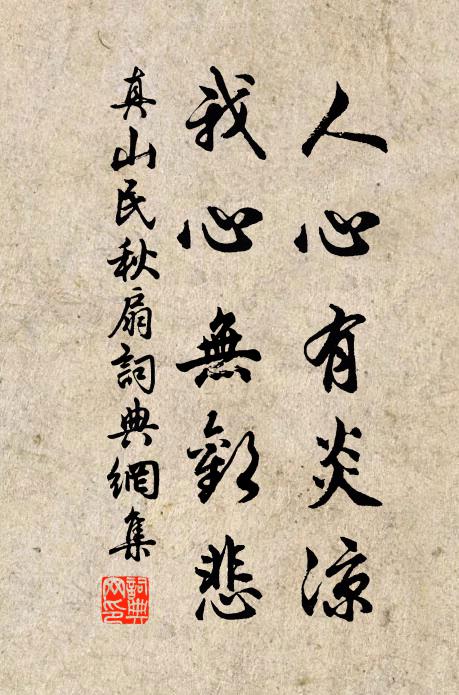 人心有炎涼
我心無歡悲
真山民秋扇詞典網集
詞典網印